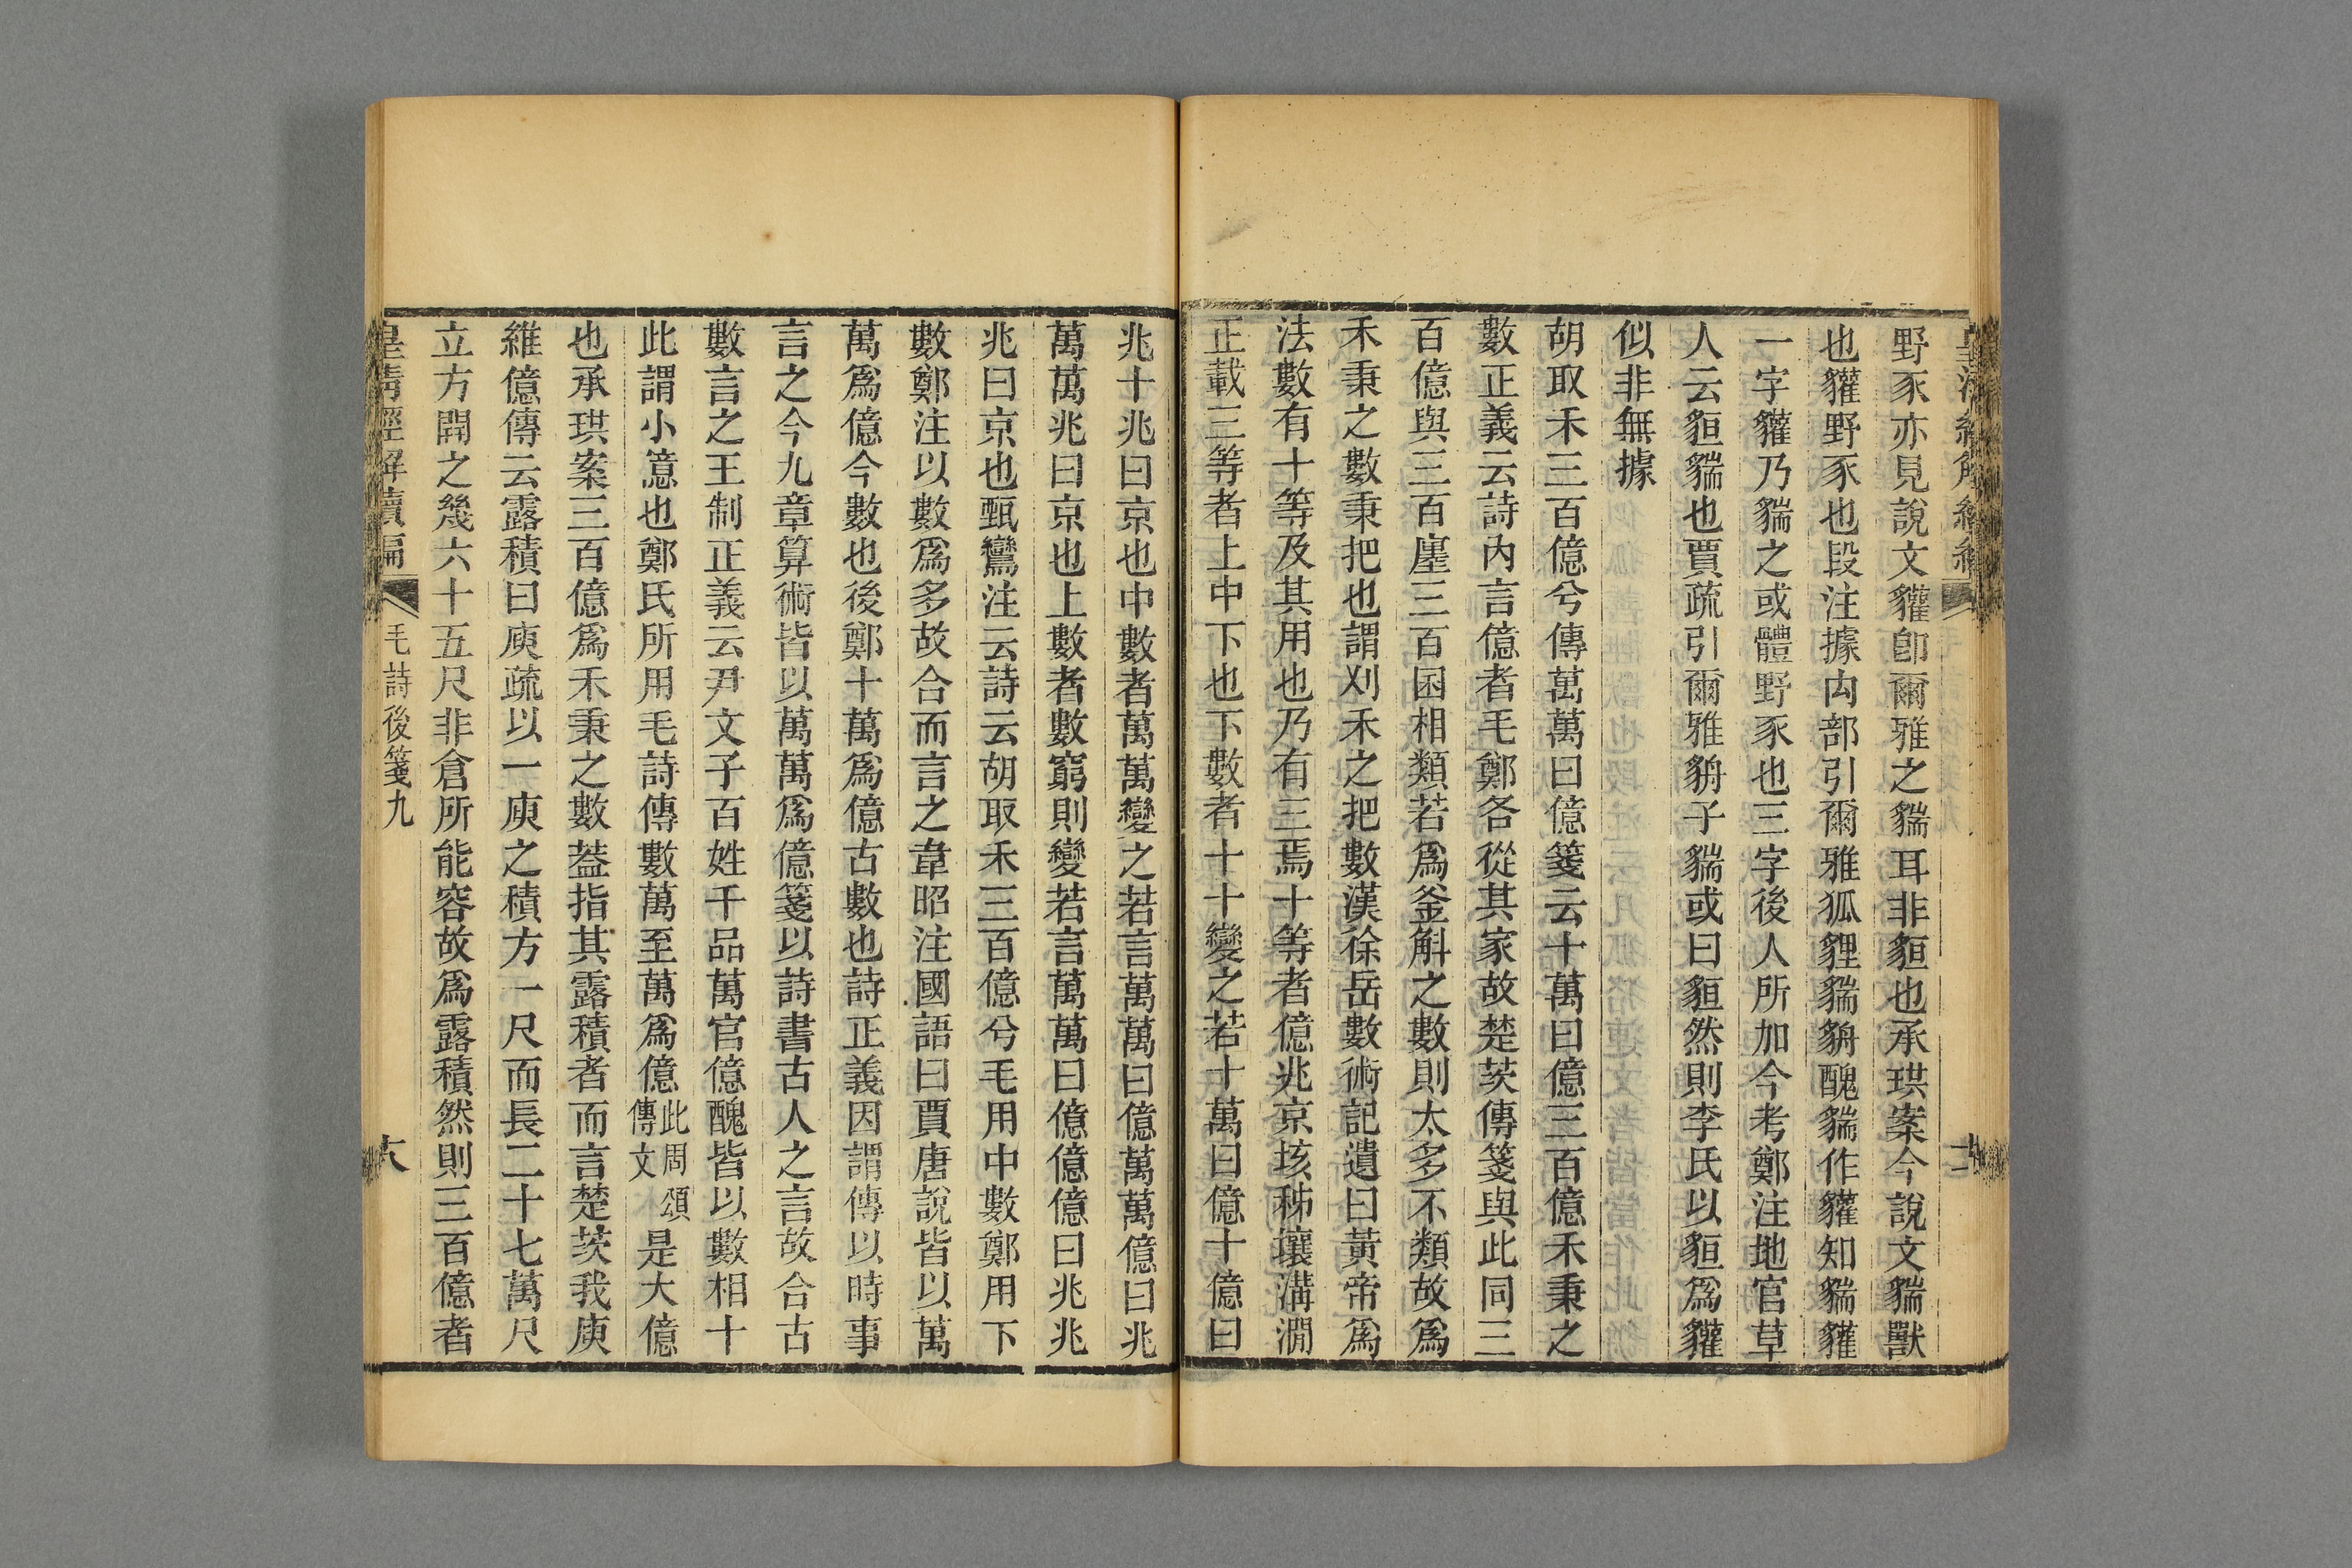 野豕亦見說文貛卽爾雅之貒耳非貆也承珙案今說文貒獸
也貛野豕也段注據禸部引爾雅狐貍貒貈醜貒作貛知貒貛
一字貛乃貒之或體野豕也三字後人所加今考鄭注地官草
人云貆貒也賈疏引爾雅貈子貒或曰貆然則李氏以貆爲貛
似非無據
胡取禾三百億兮傳萬萬曰億箋云十萬曰億三百億禾秉之
數正義云詩內言億者毛鄭各從其家故楚茨傳箋與此同三
百億與三百廛三百囷相類若爲釜斛之數則太多不類故爲
禾秉之數秉把也謂刈禾之把數漢徐岳數術記遺曰黃帝爲
法數有十等及其用也乃有三焉十等者億兆京垓秭壤溝澗
正載三等者上中下也下數者十十變之若十萬曰億十億曰
兆十兆曰京也中數者萬萬變之若言萬萬曰億萬萬億曰兆
萬萬兆曰京也上數者數窮則變若言萬萬曰億億億曰兆兆
兆曰京也甄鸞注云詩云胡取禾三百億兮毛用中數鄭用下
數鄭注以數爲多故合而言之韋昭注國語曰賈唐說皆以萬
萬爲億今數也後鄭十萬爲億古數也詩正義因謂傳以時事
言之今九章算術皆以萬萬爲億箋以詩書古人之言故合古
數言之王制正義云尹文子百姓千品萬官億醜皆以數相十
此謂小億也鄭氏所用毛詩傳數萬至萬爲億此周頌傳文是大億
也承珙案三百億爲禾秉之數葢指其露積者而言楚茨我庾
維億傳云露積曰庾疏以一庾之積方一尺而長二十七萬尺
立方開之幾六十五尺非倉所能容故爲露積然則三百億者
皇淸經解續編
毛詩後箋九
六